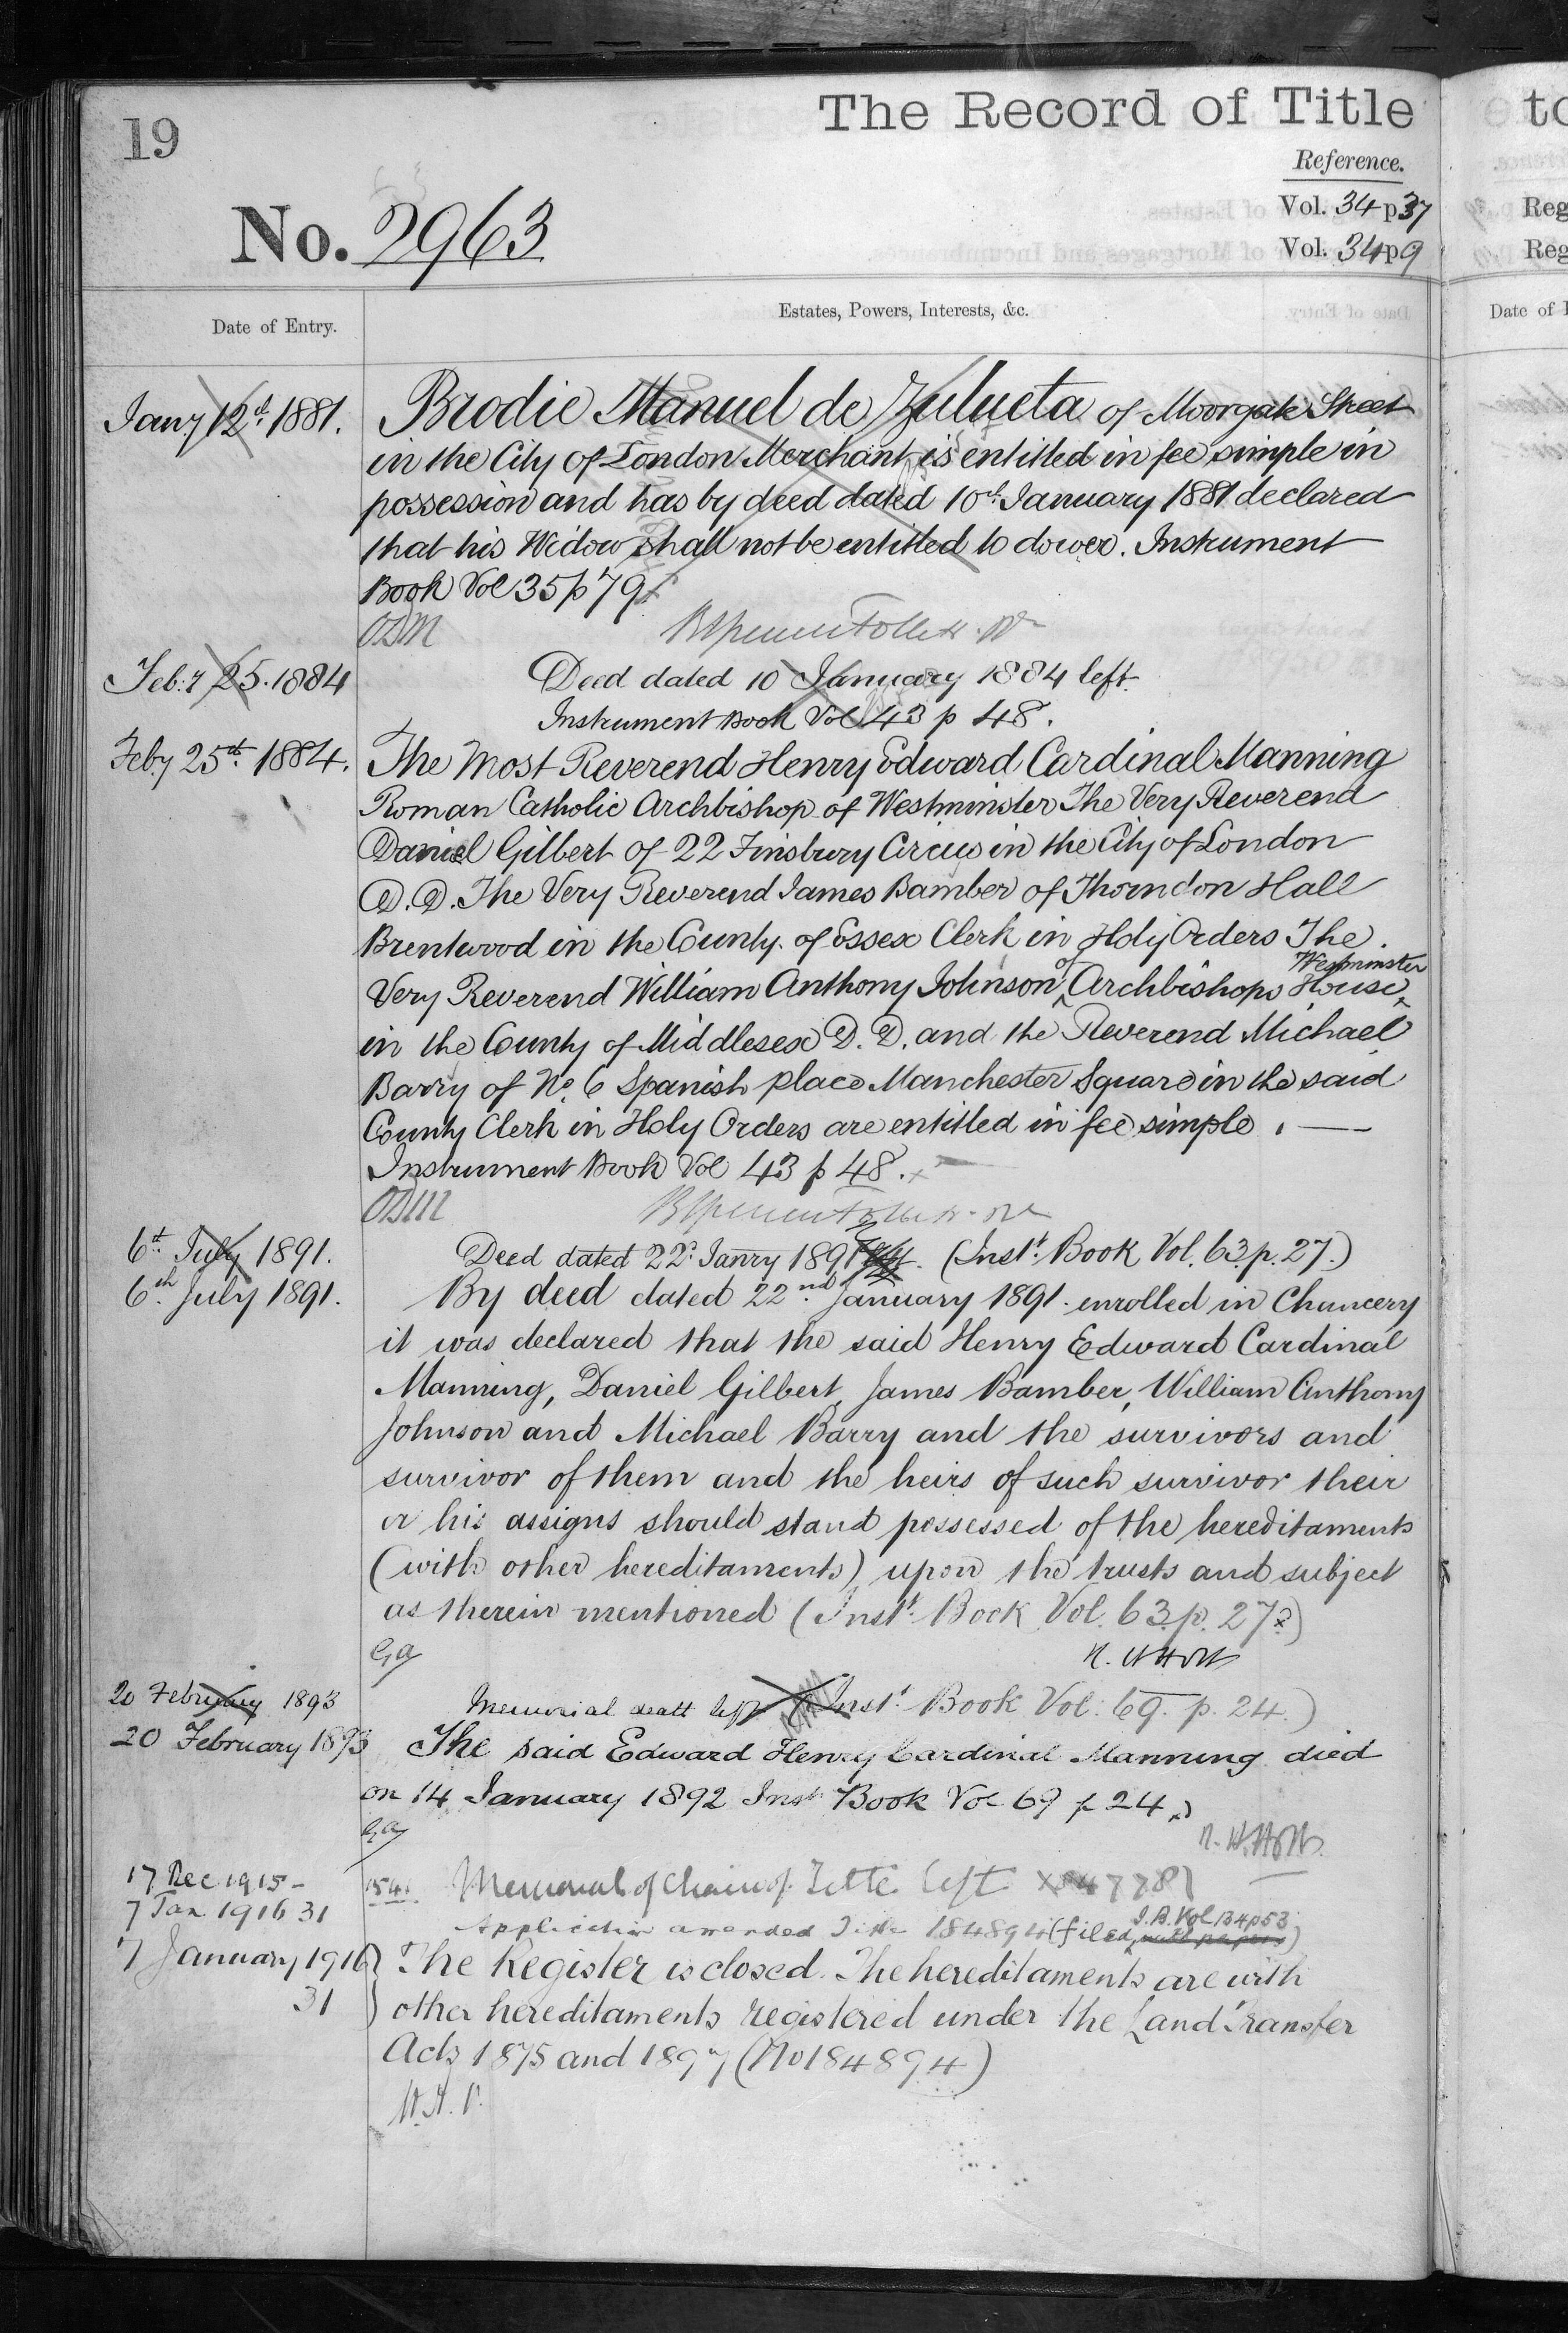 19
The Record of Title
Reference.
No. 2963
Vol. 34 p 37
Vol. 34 p 9
Date of Entry.
Estates, Powers, Interests, &c.
Jany 12th 1881.
Brodie Manuel de Zulueta of Moorgate Street
in the City of London Merchant is entitled in fee simple in
possession and has by deed dated 10th January 1881 declared
that his Widow shall not be entitled to dower. Instrument
Book Vol 35 p 79
Feb:y 25. 1884
Deed dated 10 January 1884 left.
Instrument Book Vol 43 p 48.
Feby 25th 1884.
The Most Reverend Henry Edward Cardinal Manning
Roman Catholic Archbishop of Westminster The Very Reverend
Daniel Gilbert of 22 Finsbury Circus in the City of London
D.D. The Very Reverend James Bamber of Thorndon Hall
Brentwood in the County of Essex Clerk in Holy Orders The
Very Reverend William Anthony Johnson of Archbishops House Westminster
in the County of Middlesex D.D. and the Reverend Michael
Barry of No. 6 Spanish place Manchester Square in the said
County Clerk in Holy Orders are entitled in fee simple.
Instrument Book Vol 43 p 48.
6th July 1891.
Deed dated 22d Janry 1891 left. (Inst. Book Vol. 63. p. 27.)
6th July 1891.
By deed dated 22nd January 1891. enrolled in Chancery
it was declared that the said Henry Edward Cardinal
Manning, Daniel Gilbert, James Bamber, William Anthony
Johnson and Michael Barry and the survivors and
survivor of them and the heirs of such survivor their
or his assigns should stand possessed of the hereditaments
(with other hereditaments) upon the trusts and subject
as therein mentioned (Inst. Book Vol. 63. p. 27)
20 February 1893
Memorial left (Inst. Book Vol: 69. p. 24.)
20 February 1893
The said Edward Henry Cardinal Manning died
on 14 January 1892 Inst Book Vol 69 p 24
17 Dec 1915
1541. Memorial of Chain of Title left
7 Jan 1916 31
Application amended Title 184894 (filed, I.B. Vol 134 p 53 with papers)
7 January 1916
The Register is closed. The hereditaments are with
31
other hereditaments registered under the Land Transfer
Acts 1875 and 1897 (No 184894)
to
Reg
Reg
Date of